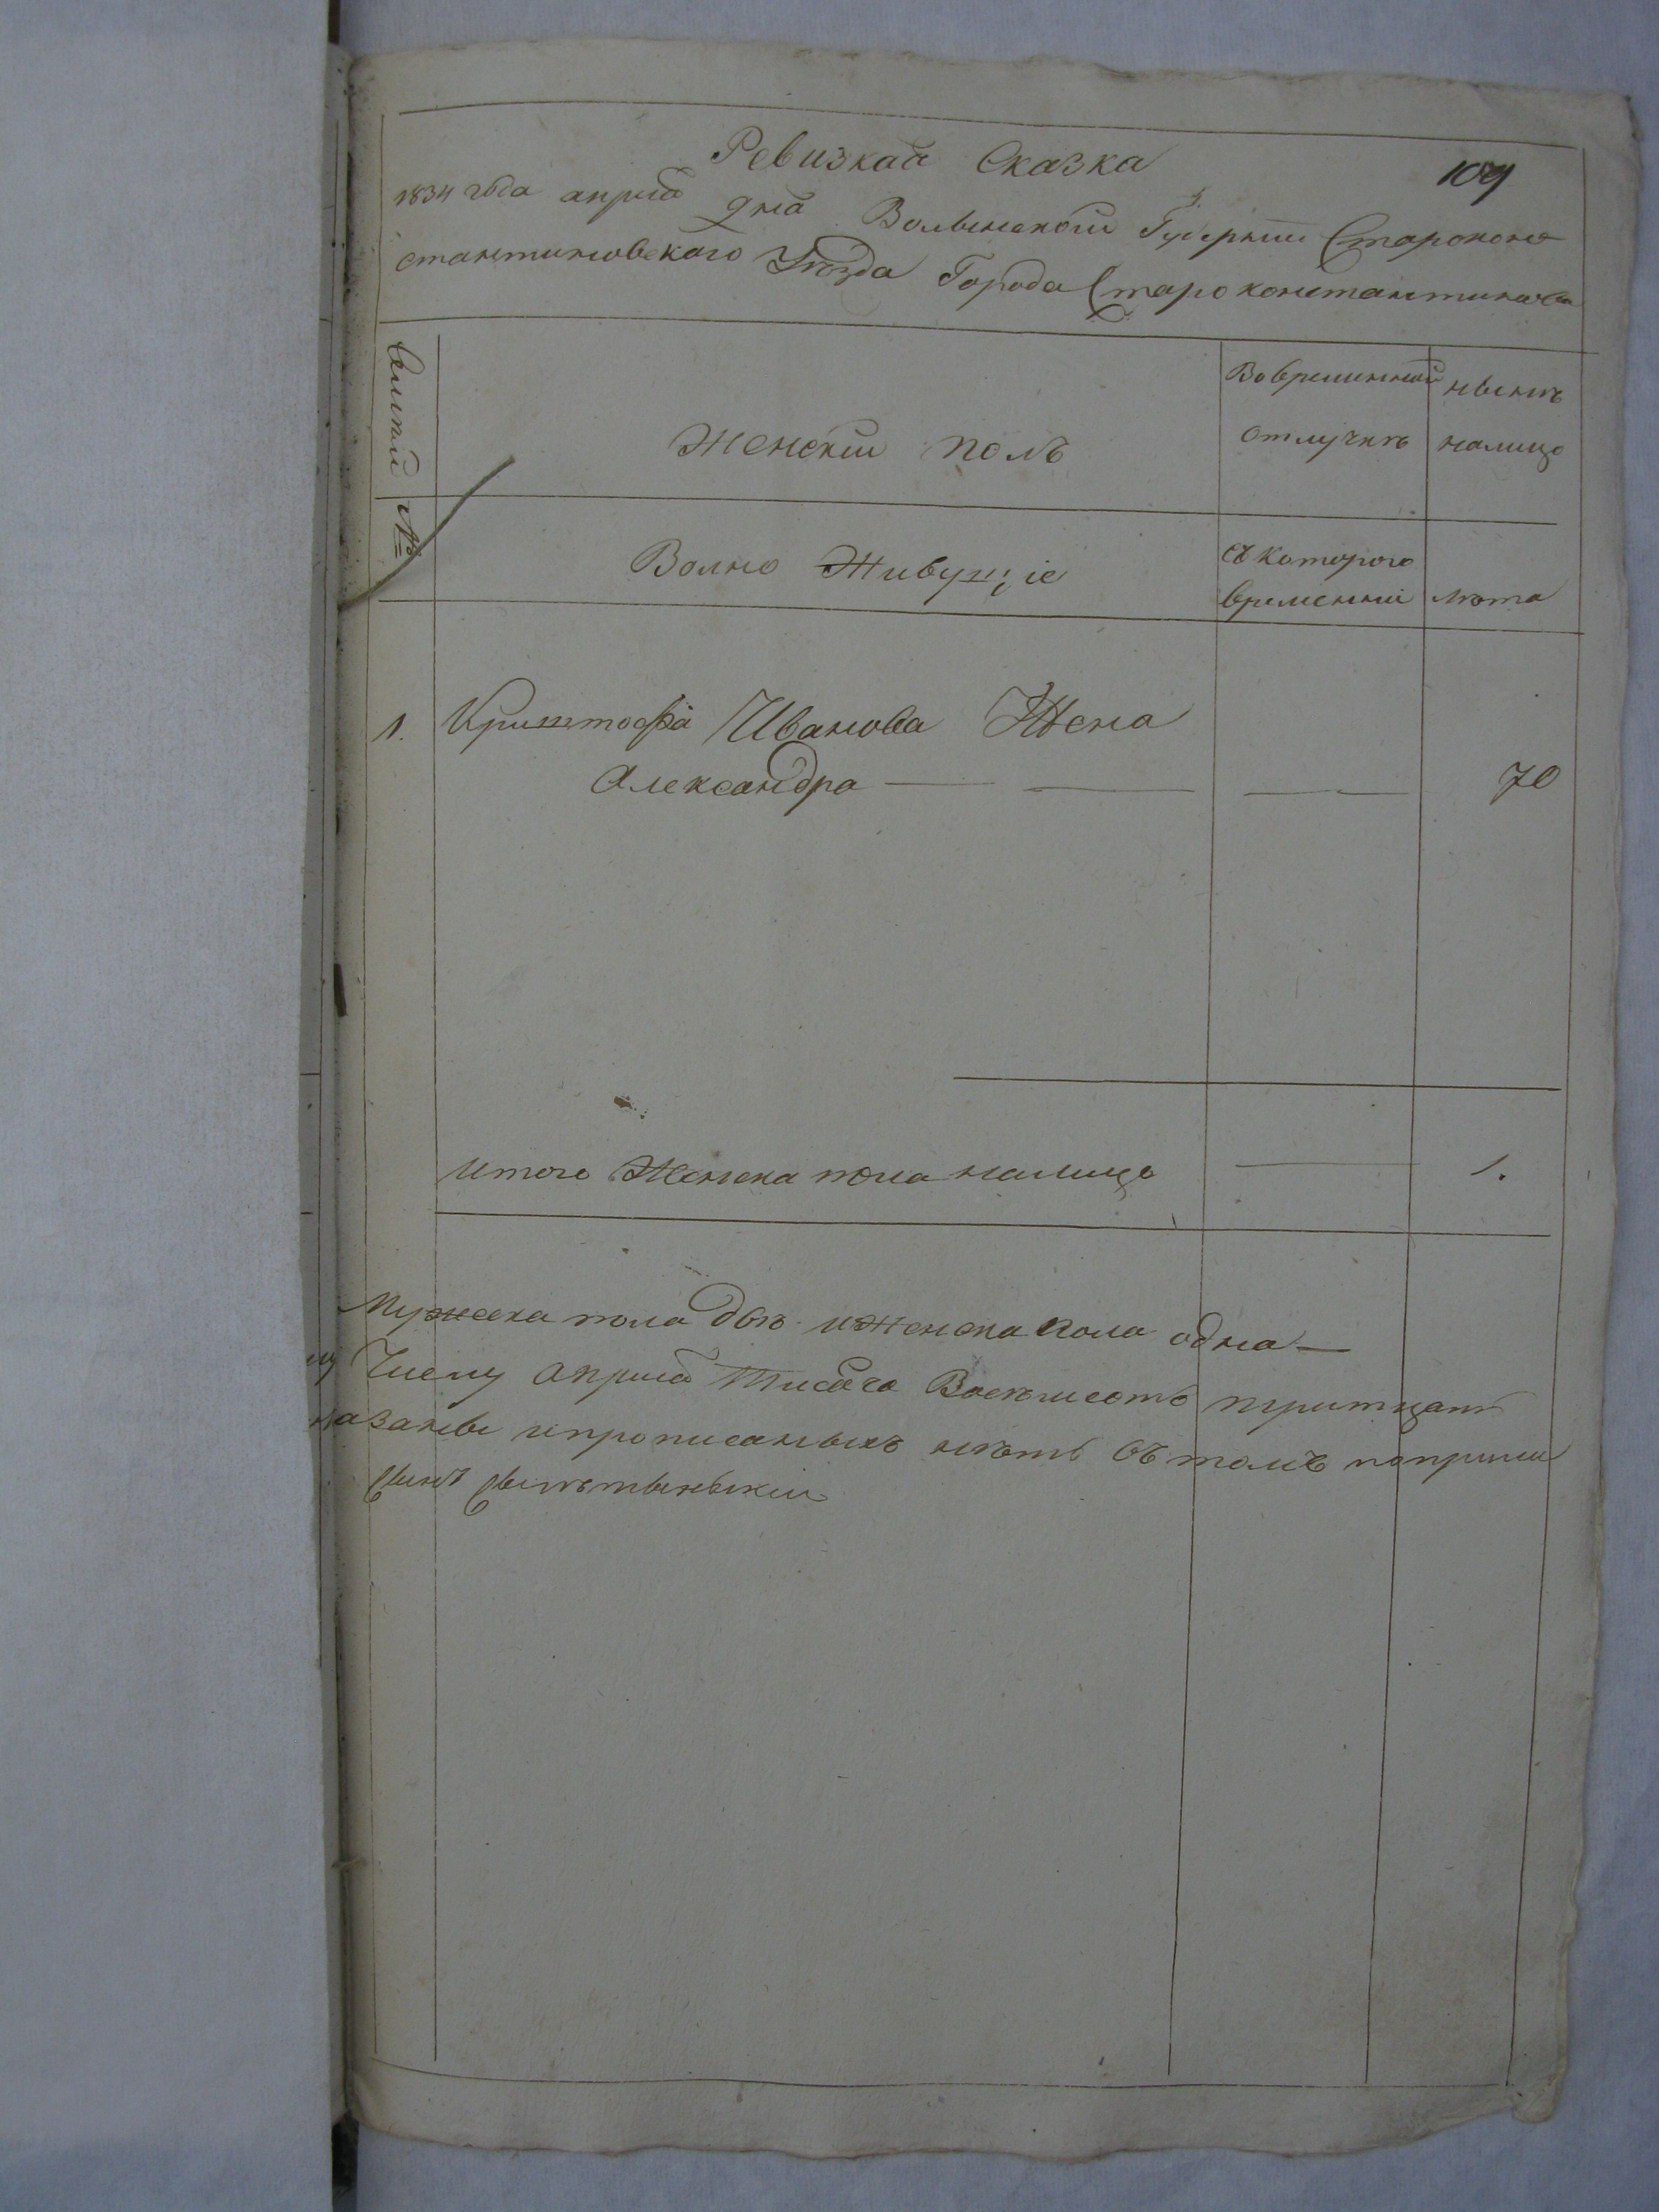 109
Ревизкая Сказка
1834 года априля дня Волынской Губернии Староконо
стантиновского Уезда Города Староконстантинова
Семьи №
Женский полъ
Вовременной отлучкъ
нынѣ налицо
Волно Живущіе
съ которого временнии
лѣта
1. Криштофа Иванова Жена
Александра — — — 70
Итого Женска пола налицо — 1.
Мужеска пола двъ иженска пола одна —
Числу априля Тисяча Восемьсотъ тритцат
иПрописаныхъ нѣтъ Въ томъ